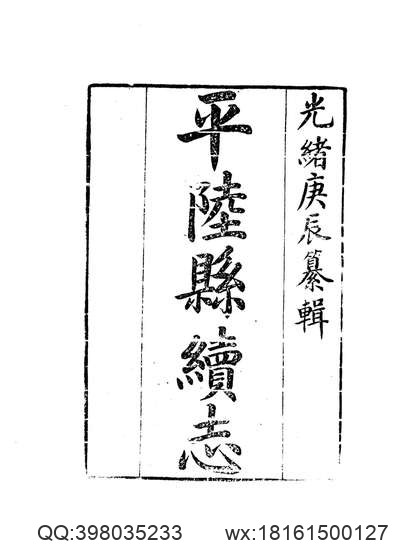 光緒庚辰纂輯
平陸縣續志
QQ:398035233 wx:18161500127